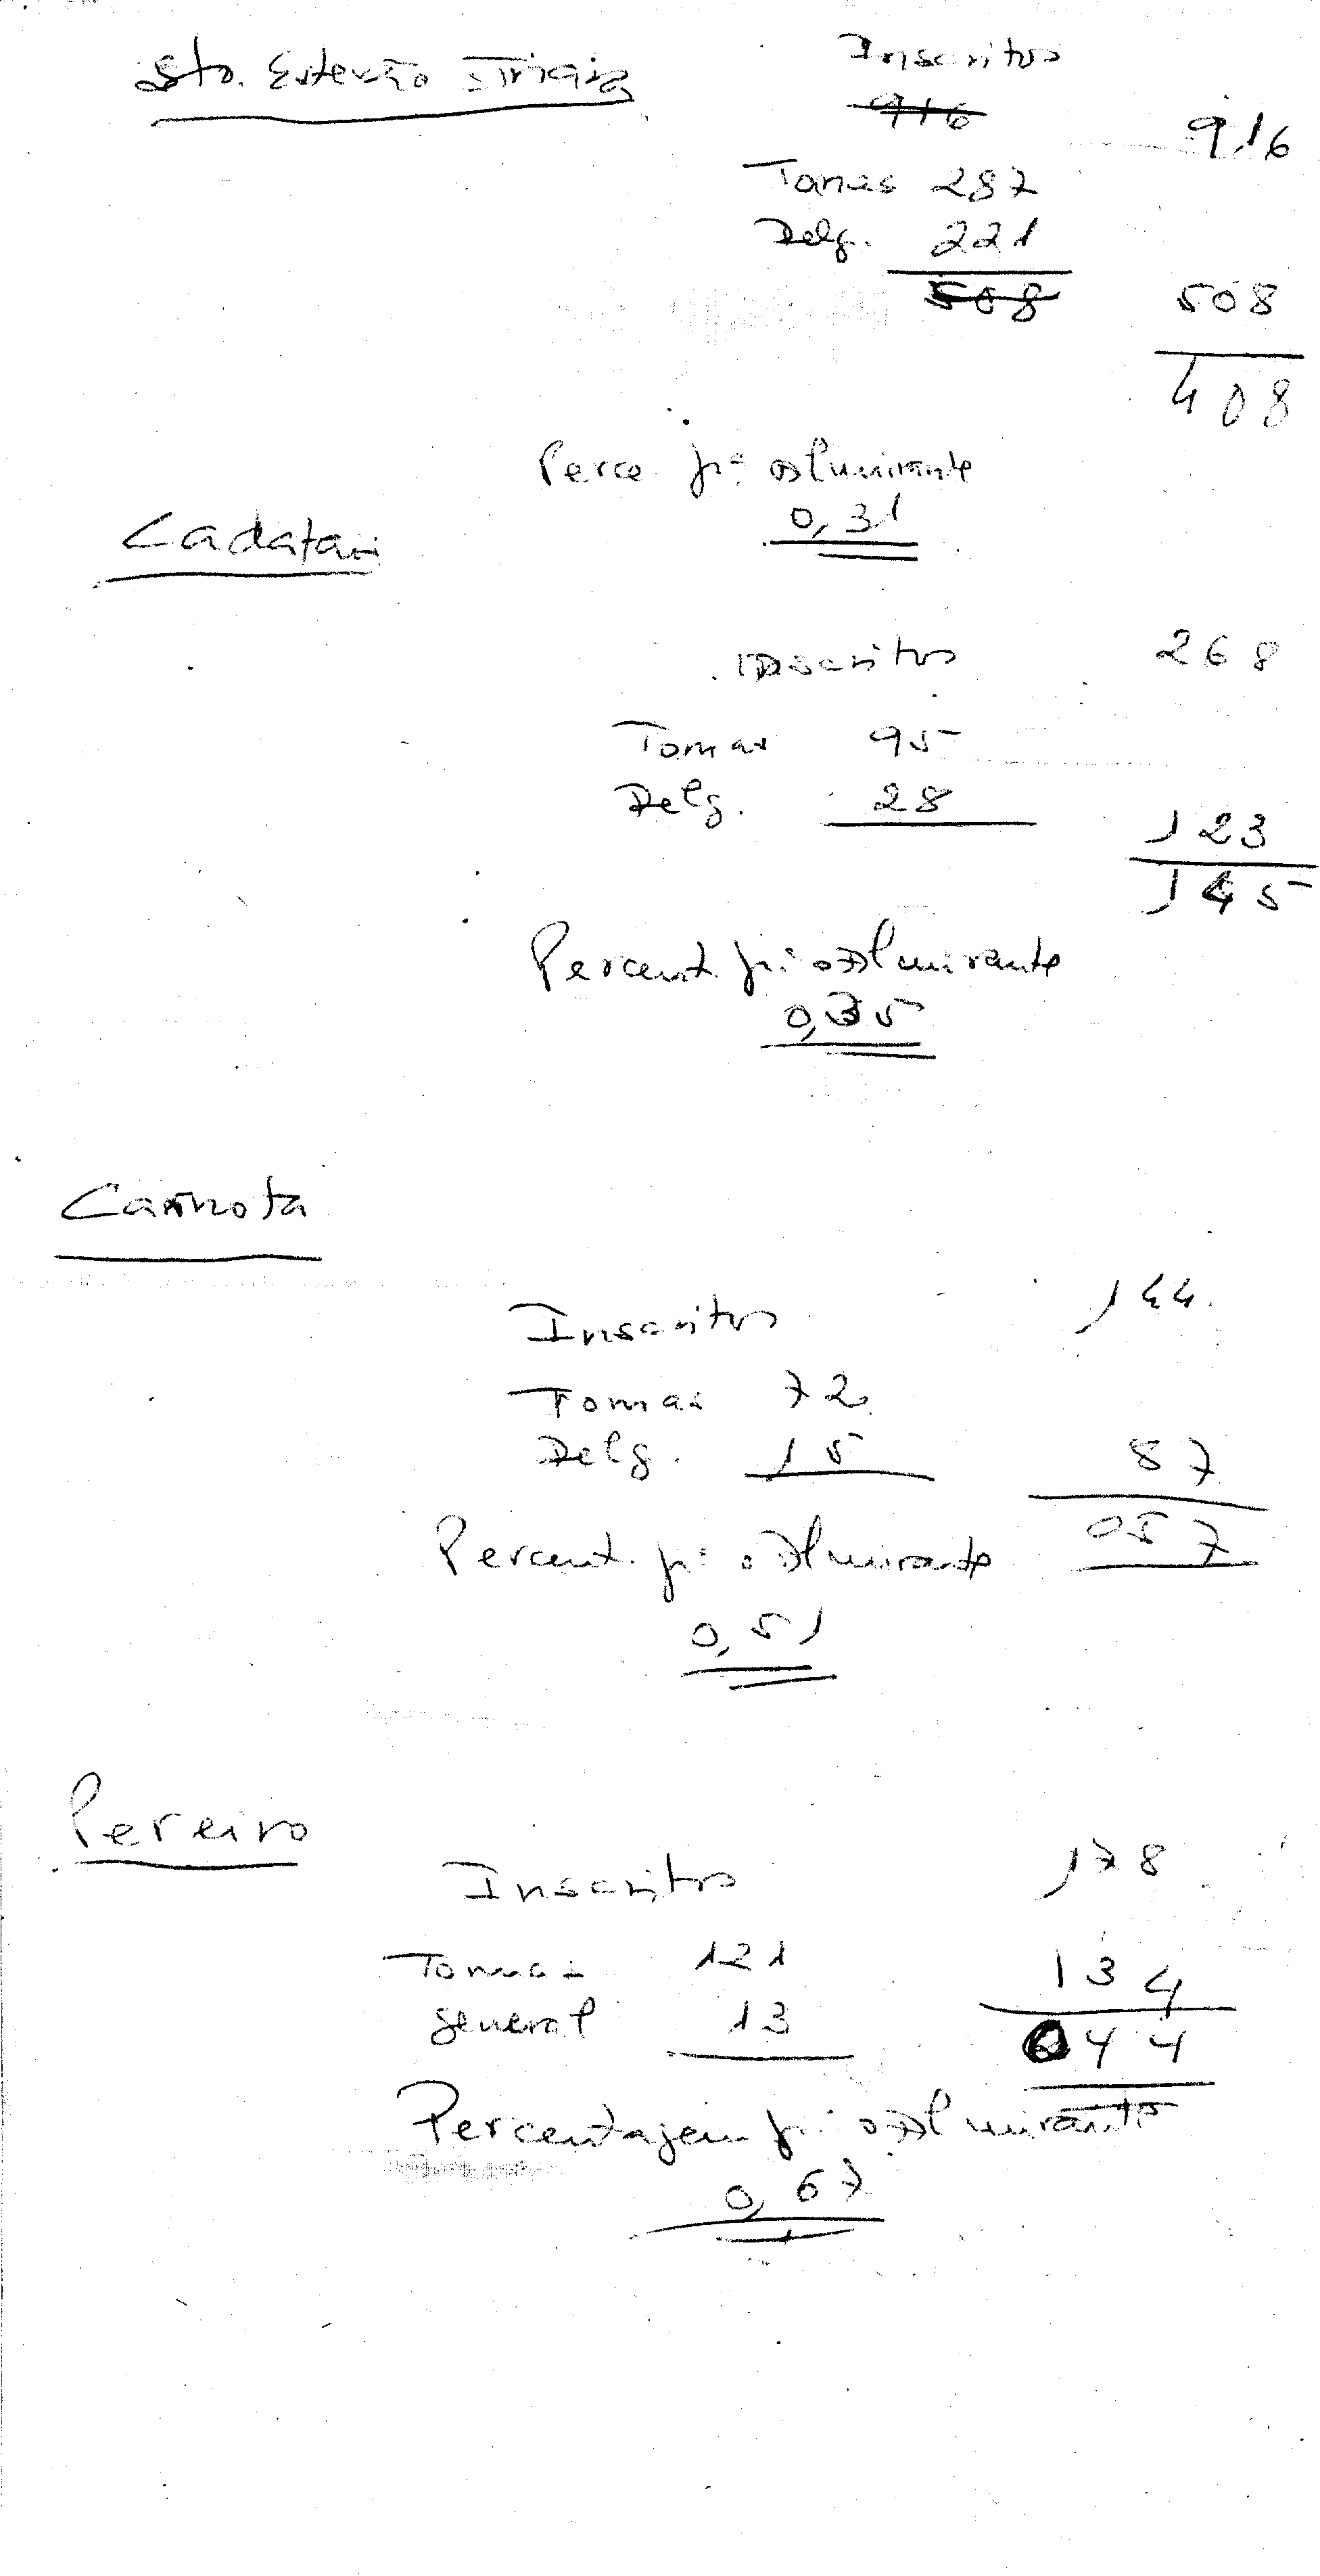 Sto. Estevão Triana
Inscritos
916 916
Tomas 287
Delg. 221
508 508
408
Perce. pª o Almirante
0,31
Cadafais
Inscritos 268
Tomas 95
Delg. 28
123
145
Percent. pª o Almirante
0,35
Carnota
Inscritos 144
Tomas 72
Delg. 15 87
057
Percent. pª o Almirante
0,51
Pereiro
Inscritos 178
Tomas 121 134
general 13
044
Percentajem pª o Almirante
0,67